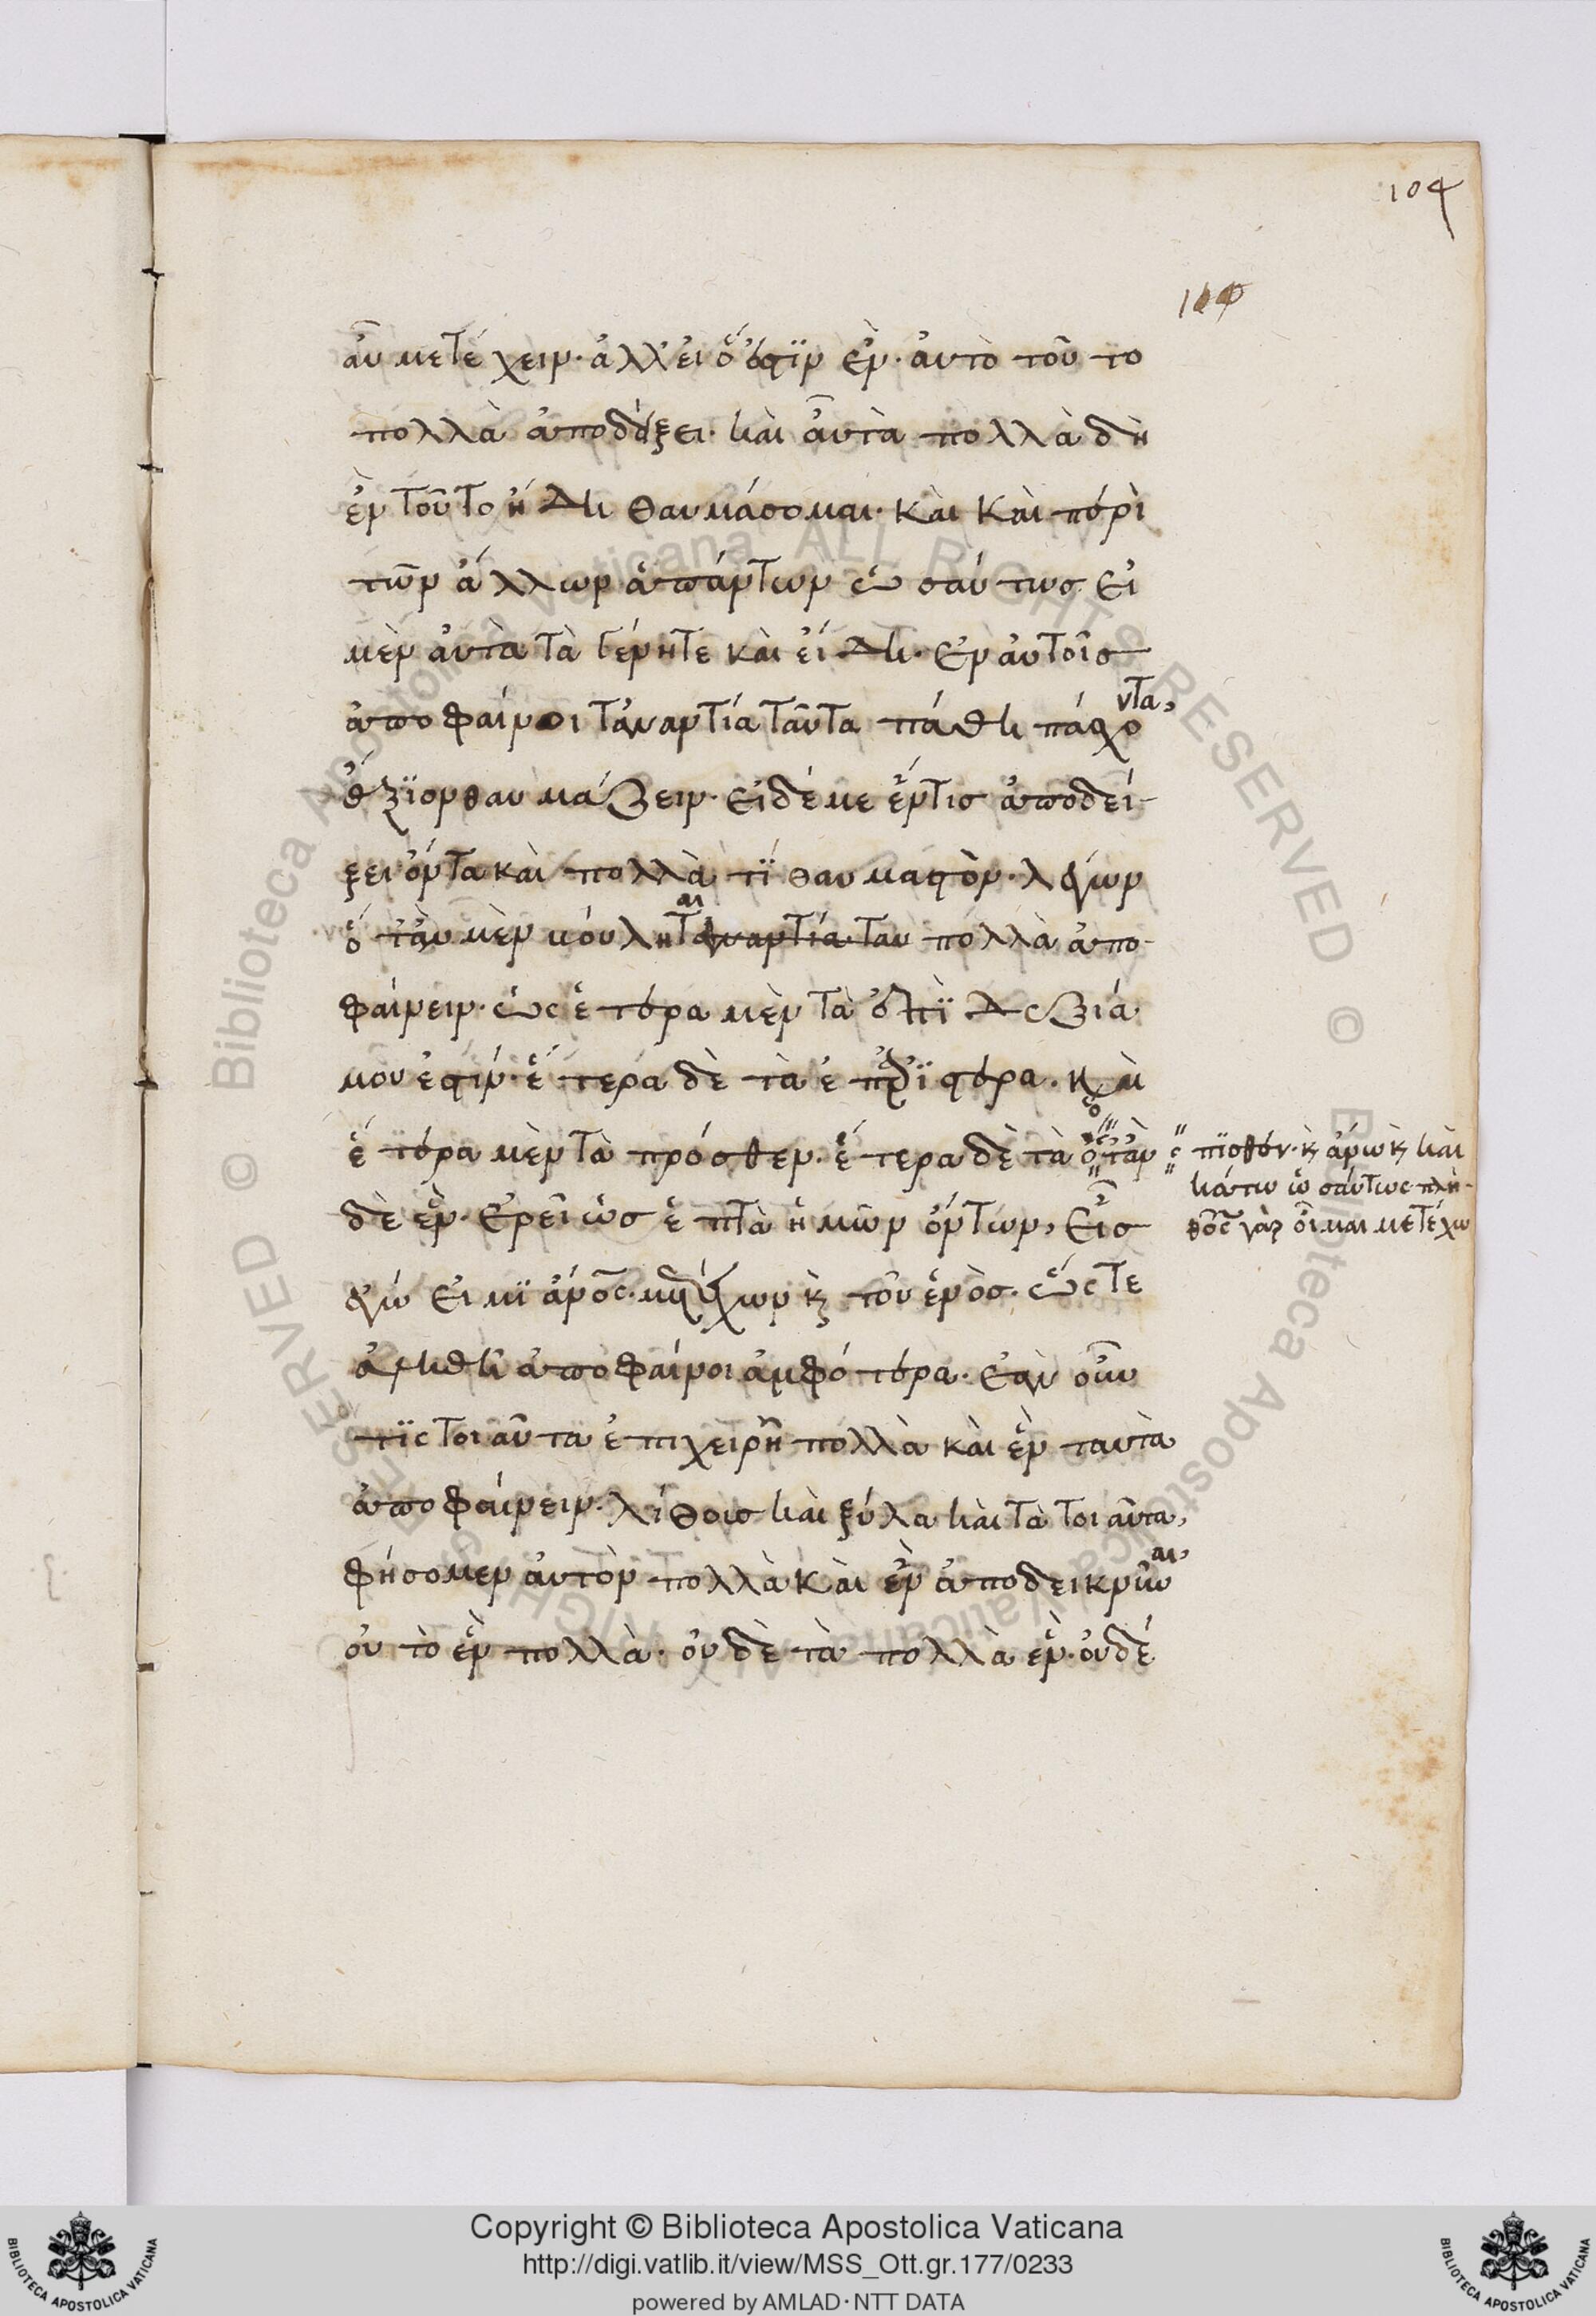 104
104
αὖ μετέχειν· ἀλλ' εἰ ὅ ἐστιν ἕν· αὐτὸ τοῦτο
πολλὰ ἀποδείξει· καὶ αὖ τὰ πολλὰ δὴ
ἓν τοῦτο ἤδη θαυμάσομαι· καὶ καὶ περὶ
τῶν ἄλλων ἁπάντων ὡσαύτως εἰ
μὲν αὐτὰ τὰ γένη τε καὶ εἴδη· ἐν αὐτοῖς
ἀποφαίνοι τἀναντία ταῦτα πάθη πάσχοντα,
ἄξιον θαυμάζειν· εἰ δέ με ἕν τις ἀποδεί-
ξει ὄντα καὶ πολλὰ τί θαυμαστὸν· λέγων
ὅταν μὲν βούληται πολλὰ ἀπο-
φαίνειν· ὡς ἕτερα μὲν τὰ ἐπὶ δεξιά
μου ἐστιν· ἕτερα δὲ τὰ ἐπ' ἀριστερα· καὶ
ἕτερα μὲν τὰ πρόσθεν· ἕτερα δὲ τὰ ὅταν
δὲ ἕν· ἐρεῖ ὡς ἑπτὰ ἡμῶν ὄντων, εἷς
ἐγώ εἰμι ἄνος· μετέχων καὶ τοῦ ἑνὸς· ὥστε
ἀληθῆ ἀποφαίνοι ἀμφότερα· ἐὰν οὖν
τις τοιαῦτα ἐπιχειρῇ πολλὰ καὶ ἓν ταυτὰ
ἀποφαίνειν· λίθοις καὶ ξύλα καὶ τὰ τοιαῦτα,
φήσομεν αὐτὸν πολλὰ καὶ ἓν ἀποδεικνῦναι
οὐ τὸ ἓν πολλὰ· οὐδὲ τὰ πολλὰ ἕν· οὐδέ
ὄπισθεν· καὶ ἄνω καὶ καὶ
κάτω ὡσαύτως πλή-
θος γὰρ οἶμαι μετέχω
Copyright © Biblioteca Apostolica Vaticana
http://digi.vatlib.it/view/MSS_Ott.gr.177/0233
powered by AMLAD·NTT DATA